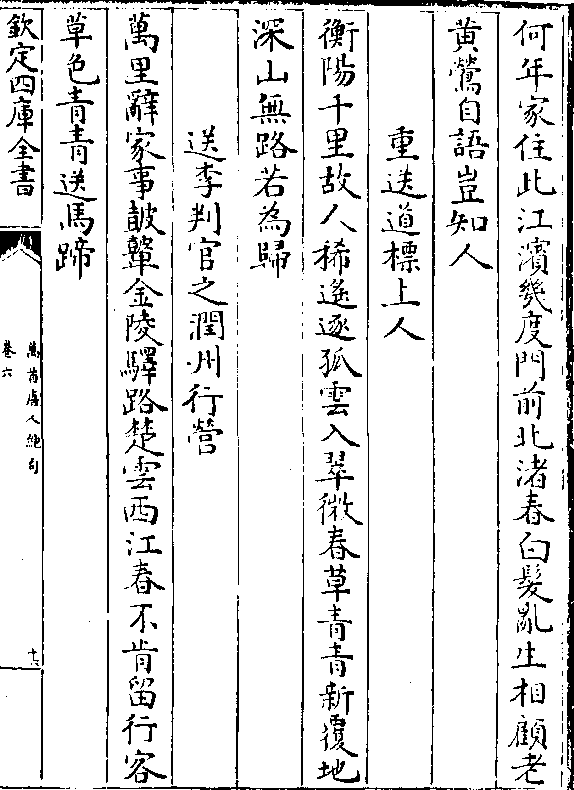 何年家住此江濱幾度門前北渚春白髮亂生相顧老
黃鶯自語豈知人
重送道標上人
衡陽千里故人稀遙逐孤雲入翠微春草青青新覆地
深山無路若為歸
送李判官之潤州行營
萬里辭家事鼓鼙金陵驛路楚雲西江春不肯留行客
草色青青送馬蹄
欽定四庫全書
萬首唐人絶句
卷六
十六